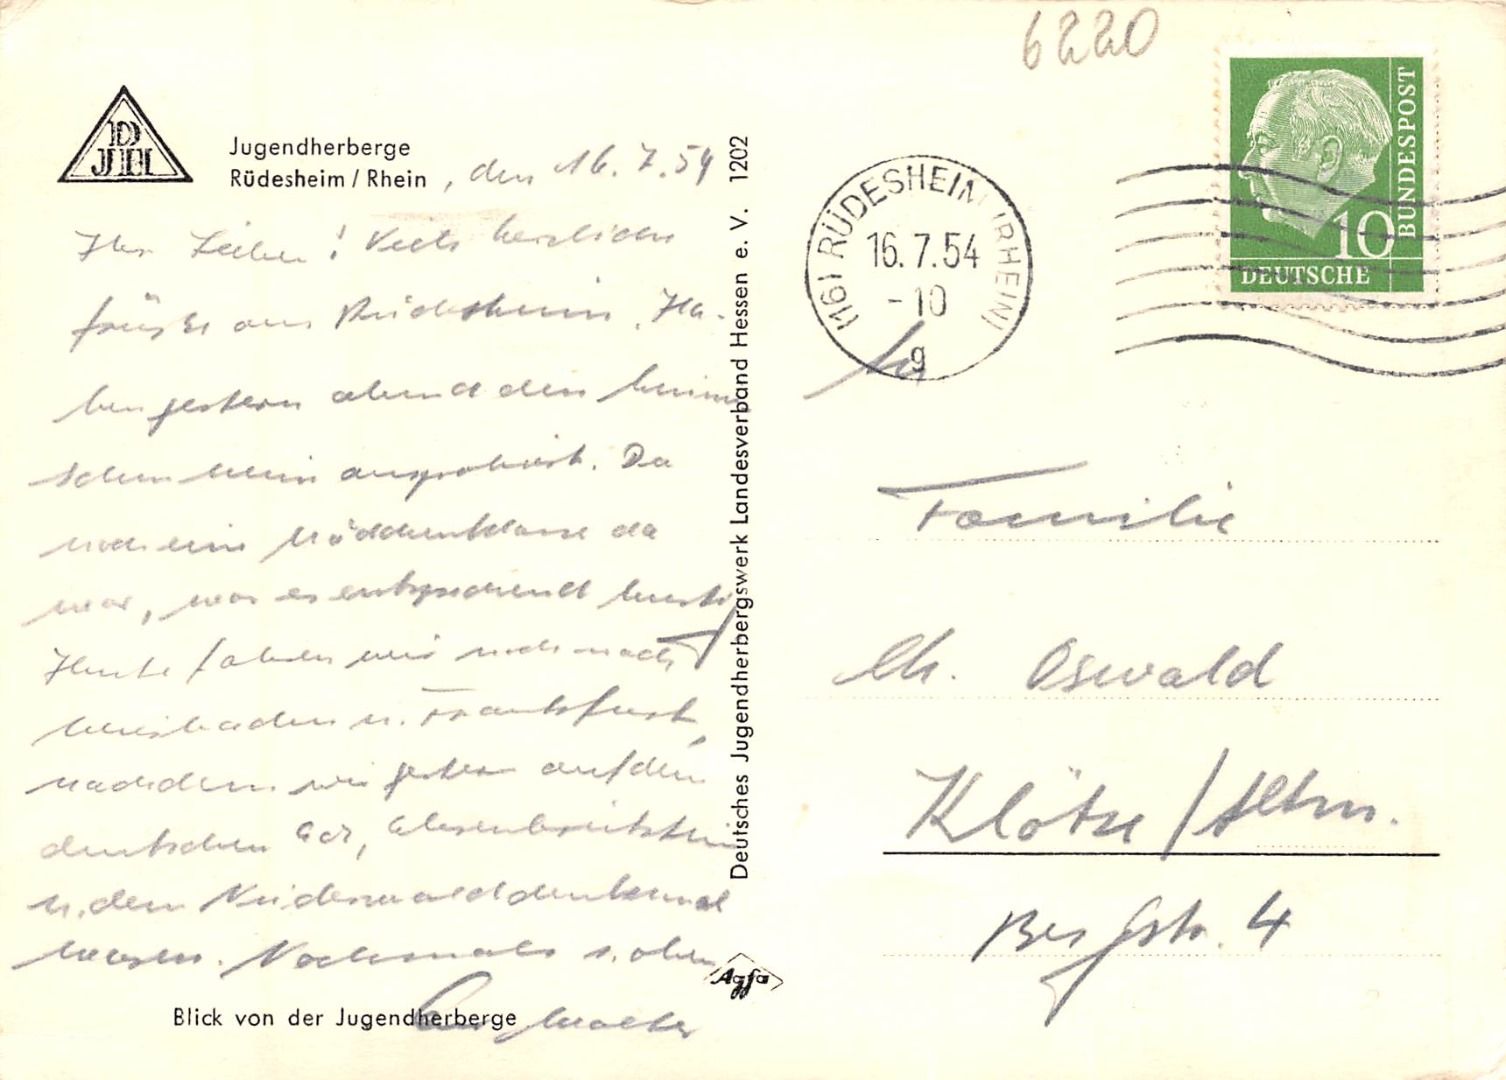 6220
DJH
Jugendherberge
Rüdesheim / Rhein, den 16.7.54
Ihr Lieben! Viele herzliche
Grüße aus Rüdesheim. Ha-
ben gestern abend den
wein ausprobiert. Da
noch eine Mädchenklasse da
war, war es entsprechend lustig
Heute fahren wir noch nach
Wiesbaden u. Frankfurt,
nachdem wir gestern auf dem
deutschen Eck, Ehrenbreitstein
u. dem Niederwalddenkmal
waren. Nochmals
Euer Walter
Blick von der Jugendherberge
Deutsches Jugendherbergswerk Landesverband Hessen e. V. 1202
Agfa
(16) RÜDESHEIM (RHEIN)
16.7.54
-10
g
DEUTSCHE BUNDESPOST
10
An
Familie
Ch. Oswald
Klötze/Altm.
Bergstr. 4